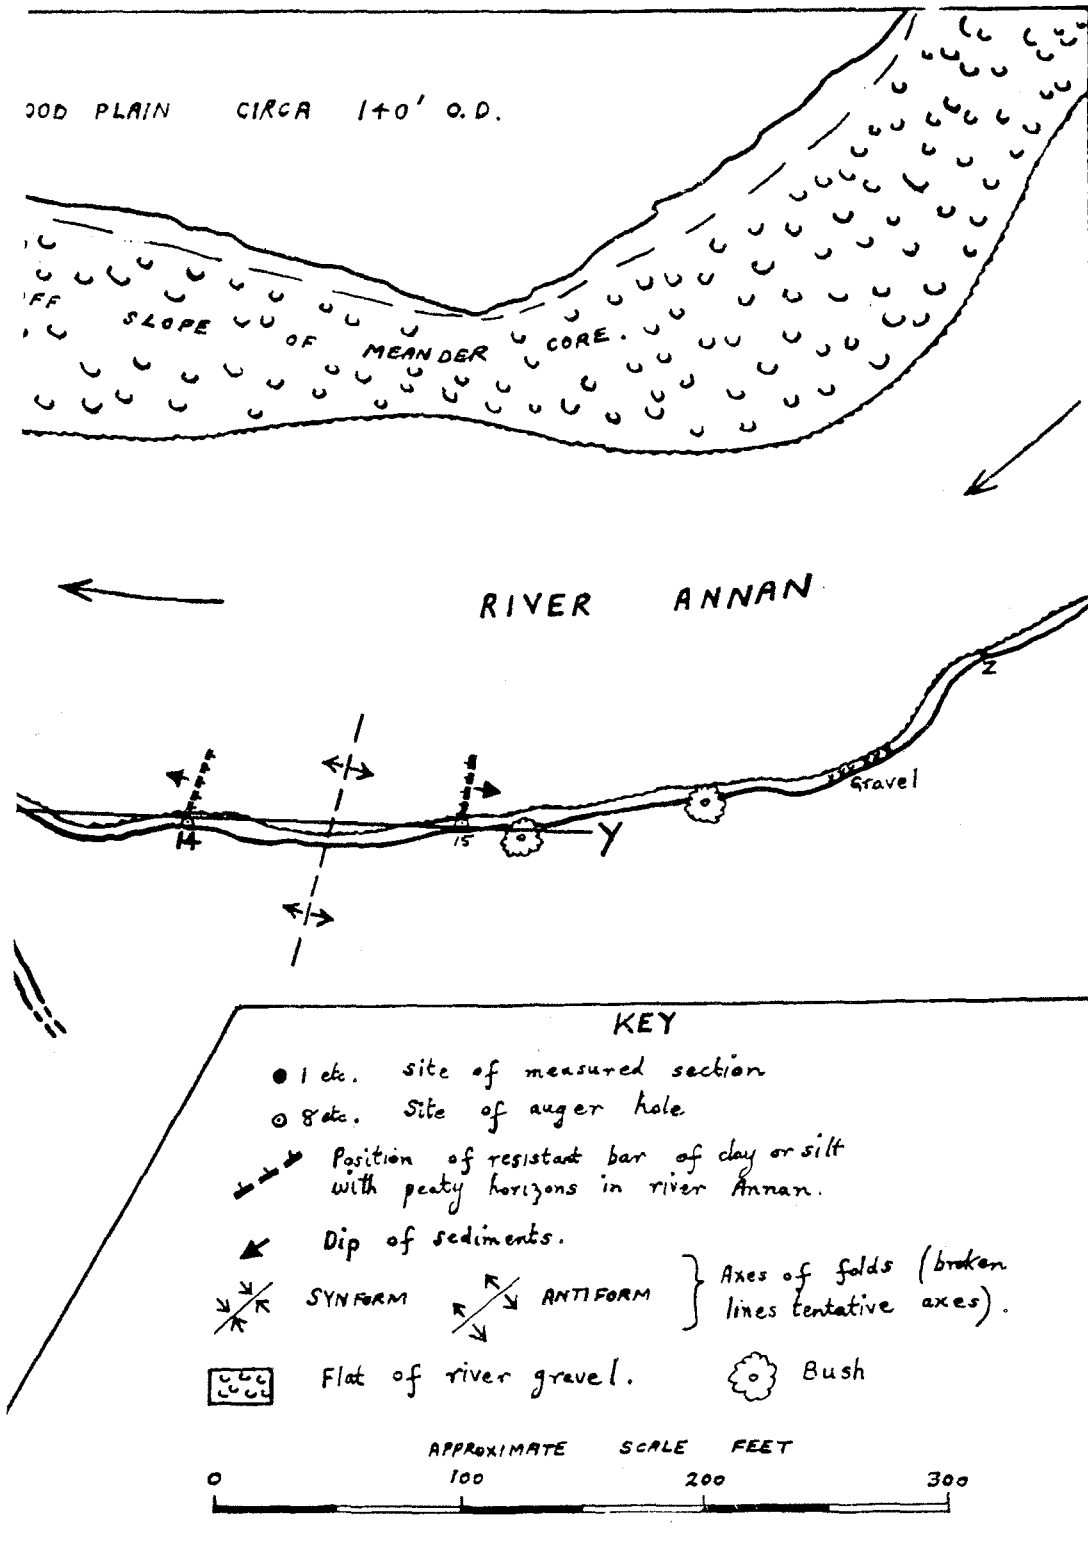 OOD PLAIN CIRCA 140' O.D.
FF SLOPE OF MEANDER CORE.
RIVER ANNAN
Z
Gravel
14
15
Y
KEY
1 etc. site of measured section
8 etc. Site of auger hole
Position of resistant bar of clay or silt
with peaty horizons in river Annan.
Dip of sediments.
SYNFORM ANTIFORM
Axes of folds (broken
lines tentative axes).
Flat of river gravel. Bush
APPROXIMATE SCALE FEET
0 100 200 300